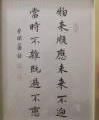 物來順應未來不迎
當時不雜既過不戀